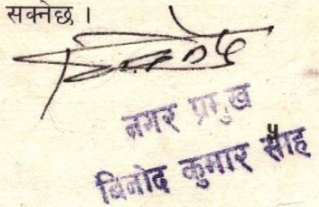 सक्नेछ ।
नगर प्रमुख
बिनोद कुमार साह